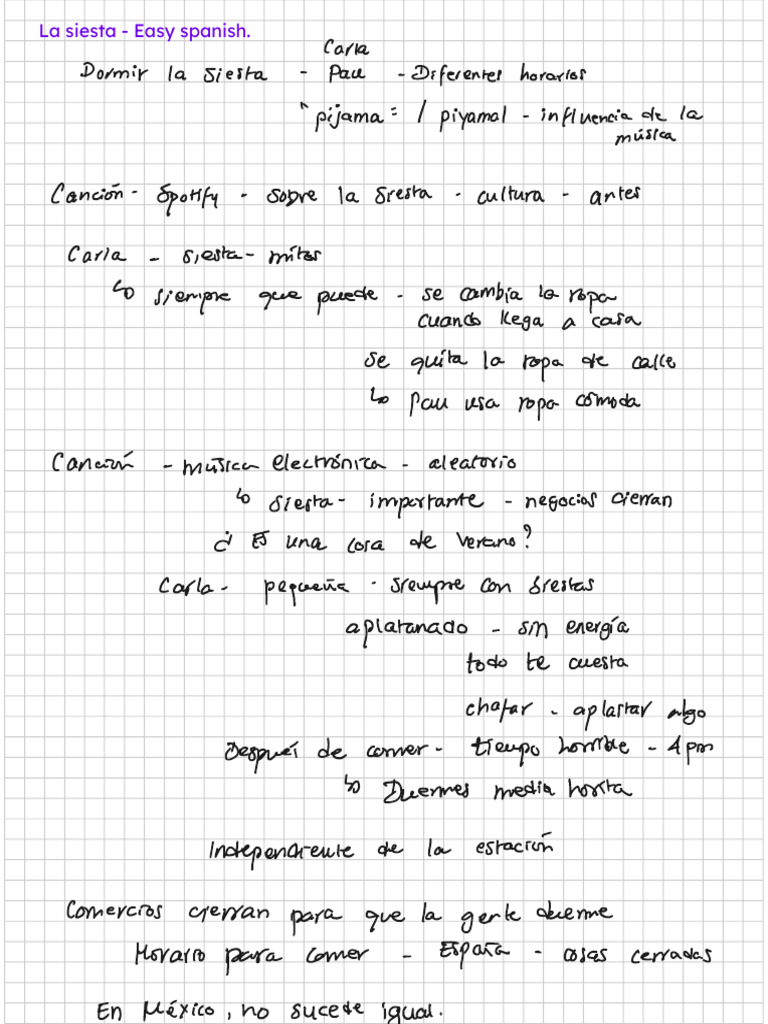 La siesta - Easy spanish.
Carla
Dormir la siesta - Pau - Diferentes horarios
"pijama = / piyamal - influencia de la
música
Canción - Spotify - sobre la siesta - cultura - antes
Carla - siesta - mitos
↳ siempre que puede - se cambia la ropa
cuando llega a casa
se quita la ropa de calle
↳ Pau usa ropa cómoda
Canción - música electrónica - aleatorio
↳ siesta - importante - negocios cierran
¿ Es una cosa de verano?
Carla - pequeña - siempre con siestas
aplatanado - sin energía
todo te cuesta
chafar - aplastar algo
Después de comer - tiempo horrible - 4 pm
↳ Duermes media horita
Independiente de la estación
Comercios cierran para que la gente duerme
Horario para comer - España - cosas cerradas
En México, no sucede igual.